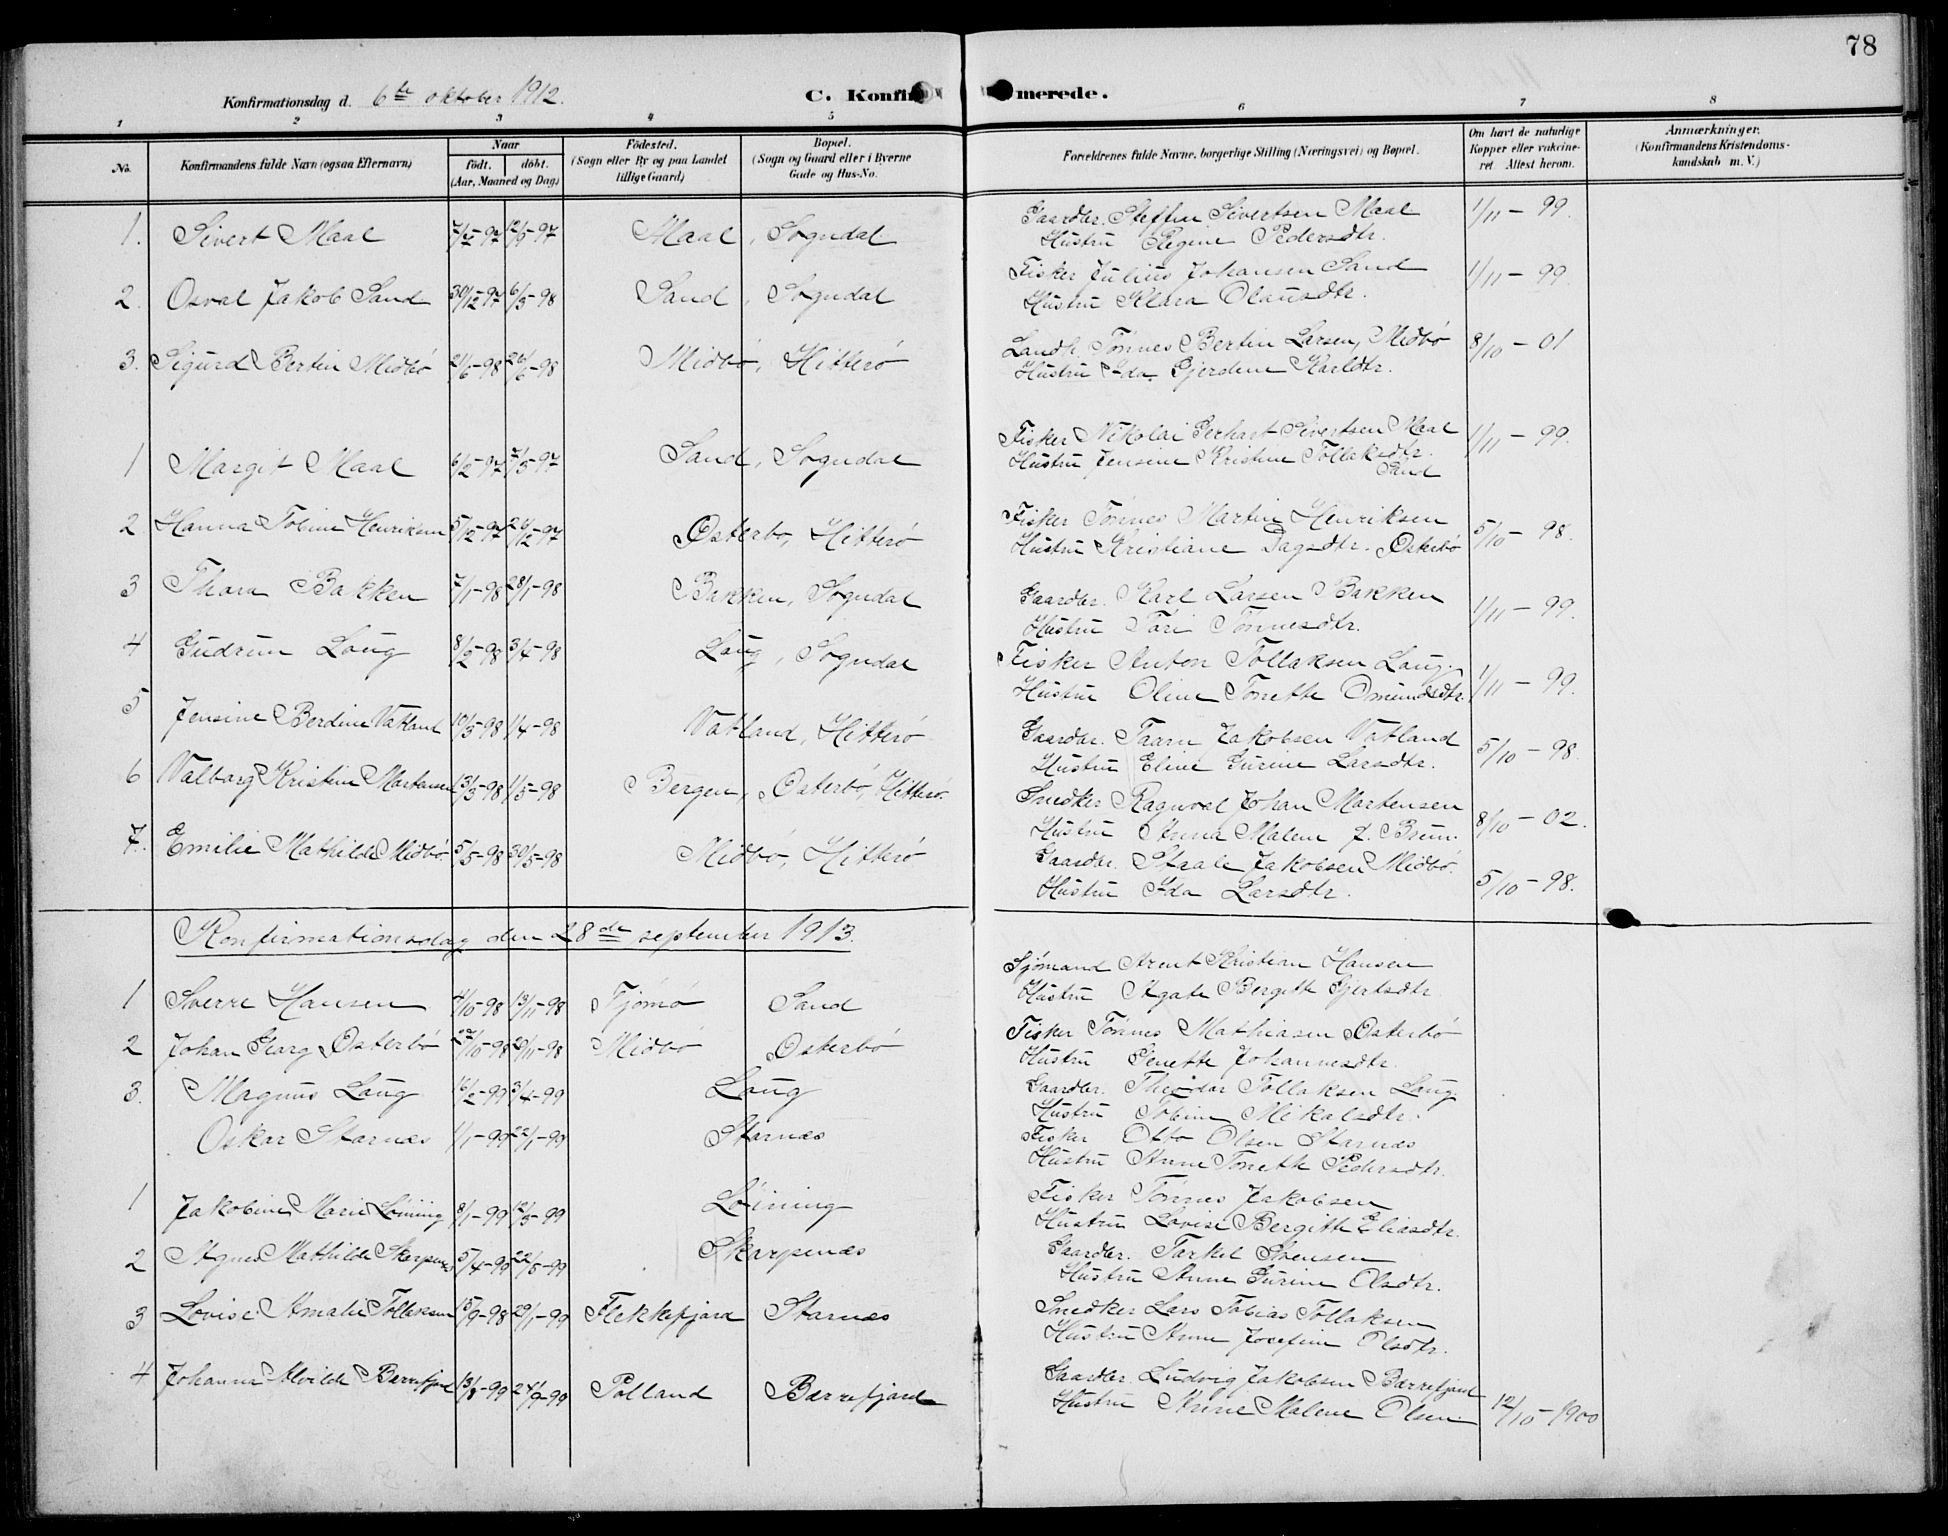 78
Konfirmationsdag d. 6te oktober 1912.
C. Konfir merede.
1 2 3 4 5 6 7 8
No. Konfirmandens fulde Navn (ogsaa Efternavn) Naar født. døbt. (Aar, Maaned og Dag) Fødested. (Sogn eller By og paa Landet tillige Gaard) Bopæl. (Sogn og Gaard eller i Byerne Gade og Hus-No. Forældrenes fulde Navne, borgerlige Stilling (Næringsvei) og Bopæl. Om havt de naturlige Kopper eller vakcineret. Attest herom. Anmærkninger. (Konfirmandens Kristendomskundskab m. V.)
1. Sivert Maal 12/5-97 Maal, Sogndal Gaardbr. Steffen Sivertsen Maal 1/11-99.
Hustru Regine Pedersdtr.
2. Osval Jakob Sand 30/12-97 6/3-98 Sand, Sogndal Fisker Julius Johansen Sand 1/11-99.
Hustru Klara Olausdtr.
3. Sigurd Bertin Midbö 21/6-98 26/6-98 Midbö, Hitterö Landh. Tönnes Bertin Larsen, Midbö 8/10-01
Hustru Ida Gjerdine Karldtr.
1 Margit Maal 6/2-97 Sand, Sogndal Fisker Nikolai Gerhart Sivertsen Maal 1/11-99.
Hustru Jensine Kristine Tollaksdtr.
Sand
2 Hanna Tobine Henriksen 5/12-97 26/12-97 Österbö, Hitterö Fisker Tönnes Martin Henriksen 5/10-98.
Hustru Kristiane Dagsdtr. Österbö
3 Thora Bakken 7/1-98 28/1-98 Bakken, Sogndal Gaardbr. Karl Larsen Bakken 1/11-99.
Hustru Tönnesdtr.
4 Gudrun Laug 8/2-98 3/4-98 Laug, Sogndal Fisker Anton Tollaksen Laug. 1/11-99.
Hustru Oline Tonette Omundsdtr.
5 Jensine Berdine Vatland 10/3-98 1/4-98 Vatland, Hitterö Gaardbr. Jakobsen Vatland 5/10-98.
Hustru Eline Gurine Larsdtr.
6 Valborg Kristine Martensen 13/3-98 1/5-98 Bergen, Österbö, Hitterö. Snedker Ragnval Johan Martensen 8/10-02.
Hustru Anna Malene f. Bruun.
7. Emilie Mathilde Midbö 5/5-98 30/5-98 Midbö, Hitterö Gaardbr. Staale Jakobsen Midbö. 5/10-98.
Hustru Ida Larsdtr.
Konfirmationsdag den 28de september 1913.
1 Sverre Hansen 4/10-98 13/11-98 Tjömö Sand Sjömand Arent Kristian Hansen
Hustru Agate Bergitte Gjertsdtr.
2 Johan Georg Österbö 27/10-98 20/11-98 Midbö Österbö Fisker Tönnes Mathiasen Österbö
Hustru Genette Johannesdtr.
3. Magnus Laug 16/2-99 3/4-99 Laug Gaardbr. Theodor Tollaksen Laug.
Hustru Tobine Mikalsdtr.
Oskar Starnæs 1/1-99 22/1-99 Starnæs Fisker Otto Olsen Starnæs
Hustru Anne Tonette Pedersdtr.
1 Jakobine Marie Löining 8/1-99 12/3-99 Löining Fisker Tönnes Jakobsen
Hustru Lovise Bergitte Eliasdtr.
2 Agnes Mathilde Skarpenæs 5/4-99 22/5-99 Skarpenæs Gaardbr. Tarkel Svensen
Hustru Anne Gurine Olsdtr.
3 Lovise Amalie Tollaksen 15/9-98 29/1-99 Flekkefjord Starnæs Snedker Lars Tobias Tollaksen
Hustru Anne Josefine Olsdtr.
4 Johanna Alvilde Barrefjord 13/8-99 24/9-99 Polland Barrefjord Gaardbr. Ludvig Jakobsen Barrefjord
Hustru Anne Malene Olsen. 12/10-1900